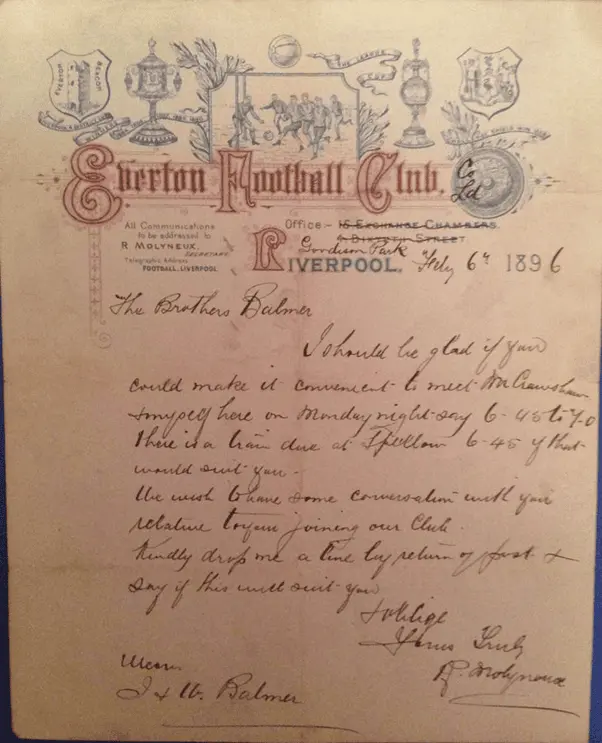 EVERTON BEACON
THE LEAGUE
CUP
Everton Football Club. Co Ld
All Communications
to be addressed to
R MOLYNEUX,
SECRETARY
Telegraphic Address
FOOTBALL, LIVERPOOL
Office:- 15 EXCHANGE CHAMBERS.
Goodison Park
LIVERPOOL, Feby 6th 1896
The Brothers Balmer
I should be glad if you
could make it convenient to meet Mr Crawshaw
& myself here on Monday night say 6-45 to 7-0
There is a train due at Spellow 6-45 if that
would suit you -
We wish to have some conversation with you
relative to you joining our Club.
Kindly drop me a line by return of post &
say if this will suit you
& oblige
Yours Truly
R. Molyneux
Messrs
J & W. Balmer